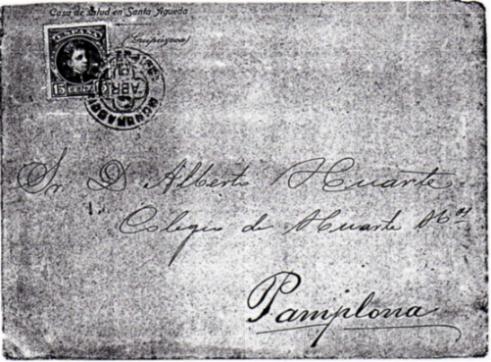 Casa de Salud en Santa Agueda
(Guipúzcoa)
15
ABR
Sr D Alberto Huarte
Colegio de Huarte Hos
Pamplona